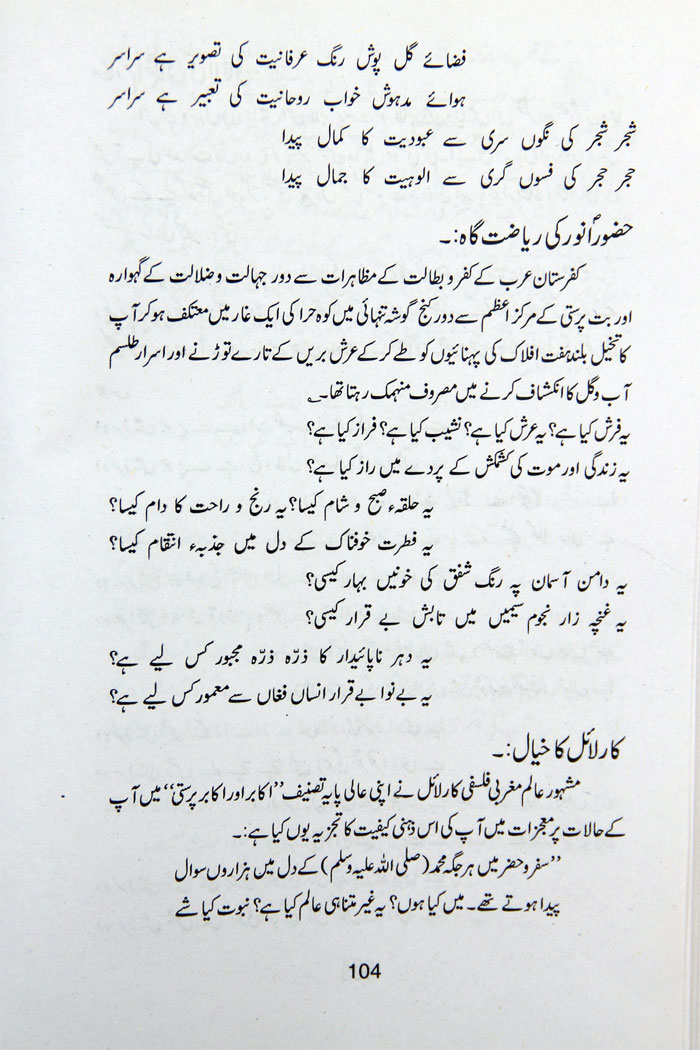 فضائے گل پوش رنگ عرفانیت کی تصویر ہے سراسر
ہوائے مدہوش خواب روحانیت کی تعبیر ہے سراسر
شجر شجر کی نگوں سری سے عبودیت کا کمال پیدا
حجر حجر کی فسوں گری سے الوہیت کا جمال پیدا
حضورؐ انور کی ریاضت گاہ:۔
کفرستان عرب کے کفر و بطالت کے مظاہرات سے دور جہالت و ضلالت کے گہوارہ
اور بت پرستی کے مرکز اعظم سے دور کنج گوشہ تنہائی میں کوہ حرا کی ایک غار میں معتکف ہو کر آپ
کا تخیل بلند ہفت افلاک کی پہنائیوں کو طے کر کے عرش بریں کے تارے توڑنے اور اسرار طلسم
آب و گل کا انکشاف کرنے میں مصروف منہمک رہتا تھا۔؂
یہ فرش کیا ہے؟ یہ عرش کیا ہے؟ نشیب کیا ہے؟ فراز کیا ہے؟
یہ زندگی اور موت کی کشمکش کے پردے میں راز کیا ہے؟
یہ حلقہء صبح و شام کیسا؟ یہ رنج و راحت کا دام کیسا؟
یہ فطرت خوفناک کے دل میں جذبہء انتقام کیسا؟
یہ دامن آسمان پہ رنگ شفق کی خونیں بہار کیسی؟
یہ غنچہ زار نجوم سیمیں میں تابش بے قرار کیسی؟
یہ دہر ناپائیدار کا ذرّہ ذرّہ مجبور کس لیے ہے؟
یہ بے نوا بے قرار انساں فغاں سے معمور کس لیے ہے؟
کارلائل کا خیال:۔
مشہور عالم مغربی فلسفی کارلائل نے اپنی عالی پایہ تصنیف ”اکابر اور اکابر پرستی“ میں آپ
کے حالات پر معجزات میں آپ کی اس ذہنی کیفیت کا تجزیہ یوں کیا ہے:۔
”سفر و حضر میں ہر جگہ محمد (صلی اللہ علیہ وسلم) کے دل میں ہزاروں سوال
پیدا ہوتے تھے۔ میں کیا ہوں؟ یہ غیر متناہی عالم کیا ہے؟ نبوت کیا شے
104